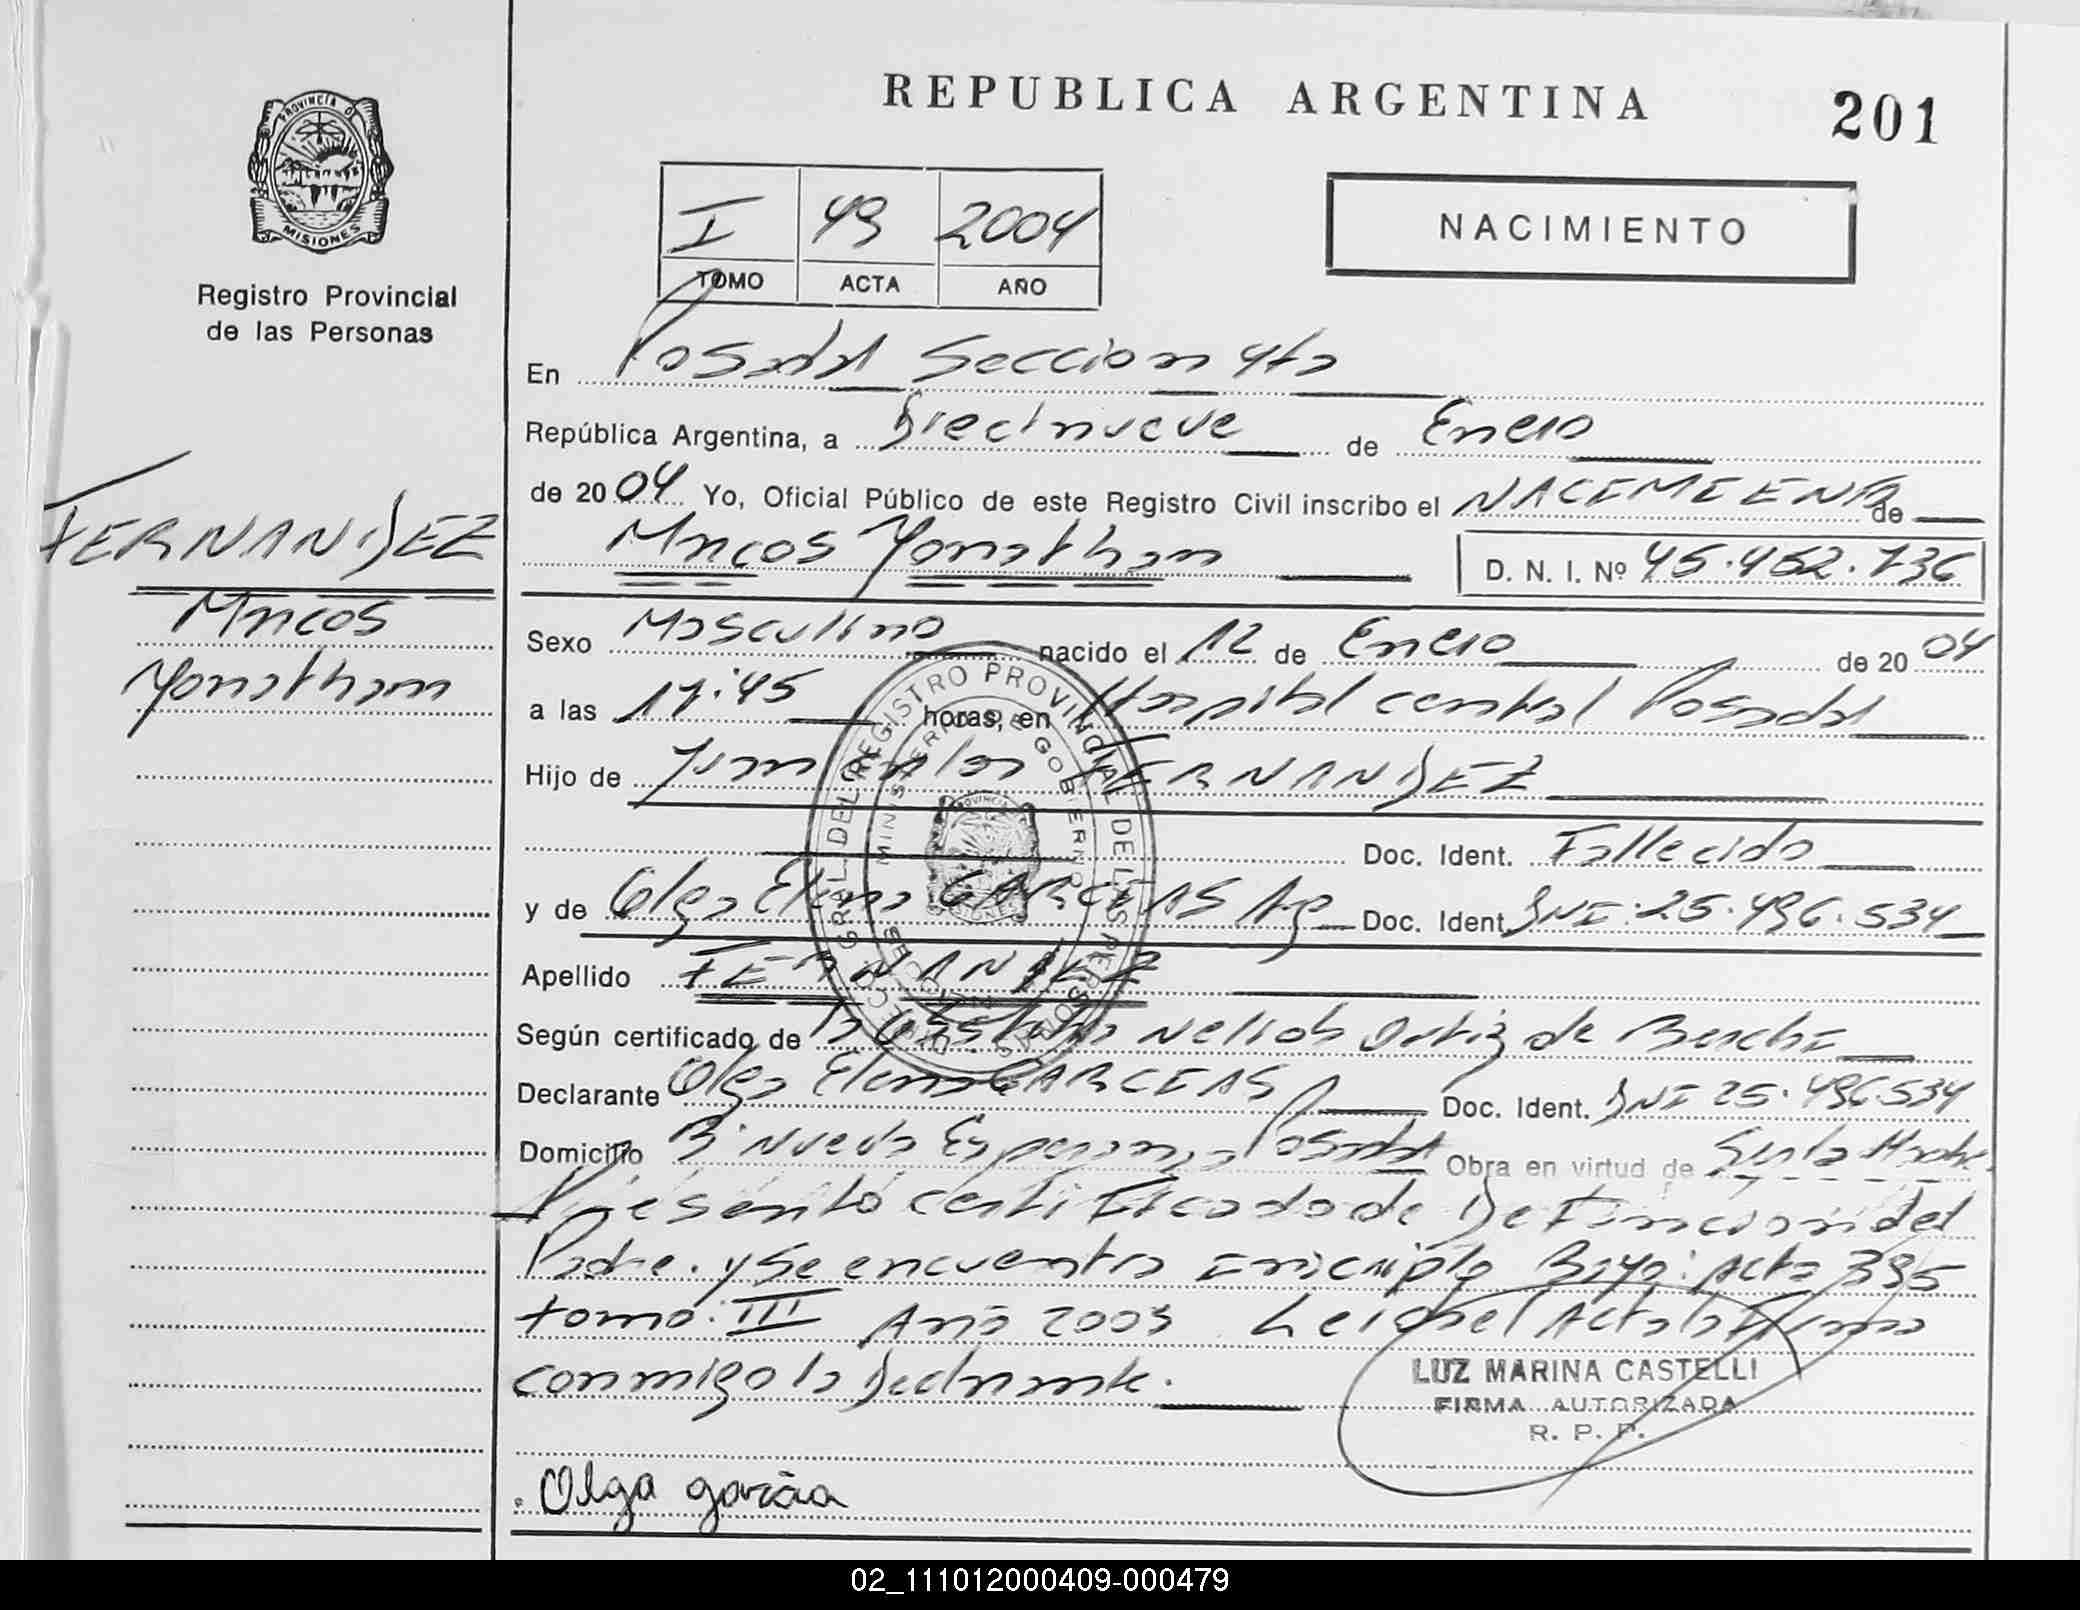 REPUBLICA ARGENTINA
201
PROVINCIA DE MISIONES
Registro Provincial
de las Personas
I 49 2004
TOMO ACTA AÑO
NACIMIENTO
FERNANDEZ
Marcos
Yonathan
En Posadas Seccion 4ta
República Argentina, a Diecinueve de Enero
de 2004 Yo, Oficial Público de este Registro Civil inscribo el NACIMIENTO de
Marcos Yonathan D. N. I. Nº 45.452.736
Sexo Masculino nacido el 12 de Enero de 2004
a las 17:45 horas, en Hospital central Posadas
Hijo de Juan Carlos FERNANDEZ
Doc. Ident. Fallecido
y de Olga Elena GARCIAS Arg Doc. Ident. DNI: 25.496.534
Apellido FERNANDEZ
Según certificado de la Obstetra Nelida Ortiz de
Declarante Olga Elena GARCIAS Doc. Ident. DNI 25.496.534
Domicilio B° Nueva Esperanza Posadas Obra en virtud de Ser la Madre.
Presentó certificado de Defuncion del
Padre. y se encuentra Inscripto Bajo: Acta 395
tomo: III Año 2003 Leida el Acta la Firma
conmigo la Declarante.
LUZ MARINA CASTELLI
FIRMA AUTORIZADA
R. P. P.
Olga garcia
02_111012000409-000479